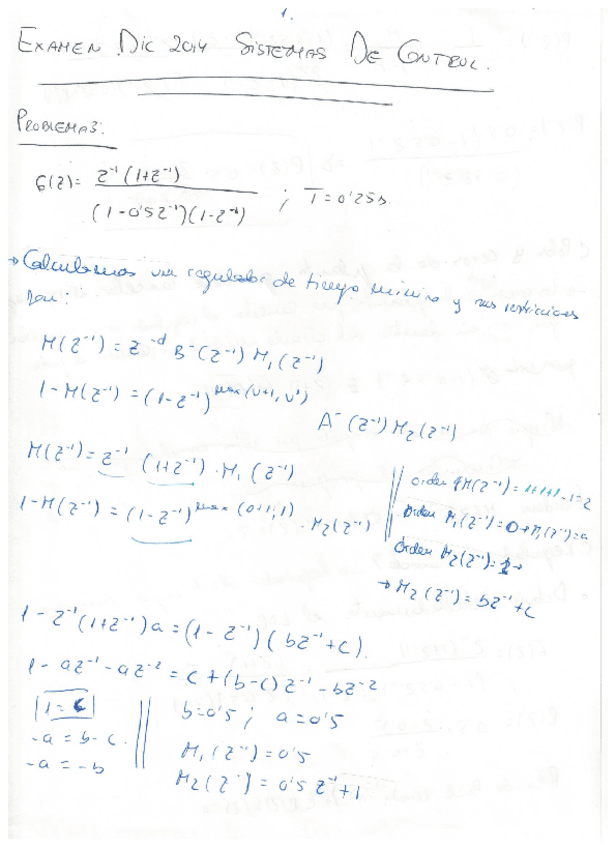 1.
EXAMEN DIC 2014 SISTEMAS DE CONTROL.
PROBLEMAS:
G(z) = z⁻¹(1+z⁻¹) / (1-0'5z⁻¹)(1-z⁻¹) ; T=0'25s
→ Calculamos un regulador de tiempo mínimo y sus restricciones
son:
M(z⁻¹) = z⁻ᵈ B⁻(z⁻¹) M₁(z⁻¹)
1-M(z⁻¹) = (1-z⁻¹)^max(v+1, v') A⁻(z⁻¹) M₂(z⁻¹)
M(z⁻¹) = z⁻¹ (1+z⁻¹) · M₁(z⁻¹)
1-M(z⁻¹) = (1-z⁻¹)^max(0+1, 1) · M₂(z⁻¹)
orden M(z⁻¹) = 1+1+1-1=2
orden M₁(z⁻¹) = 0 → M₁(z⁻¹)=a
orden M₂(z⁻¹) = 1 →
→ M₂(z⁻¹) = bz⁻¹+c
1 - z⁻¹(1+z⁻¹)a = (1-z⁻¹)(bz⁻¹+c).
1 - az⁻¹ - az⁻² = c + (b-c)z⁻¹ - bz⁻²
1 = c
-a = b - c.
-a = -b
b=0'5 ; a=0'5
M₁(z⁻¹) = 0'5
M₂(z⁻¹) = 0'5 z⁻¹+1